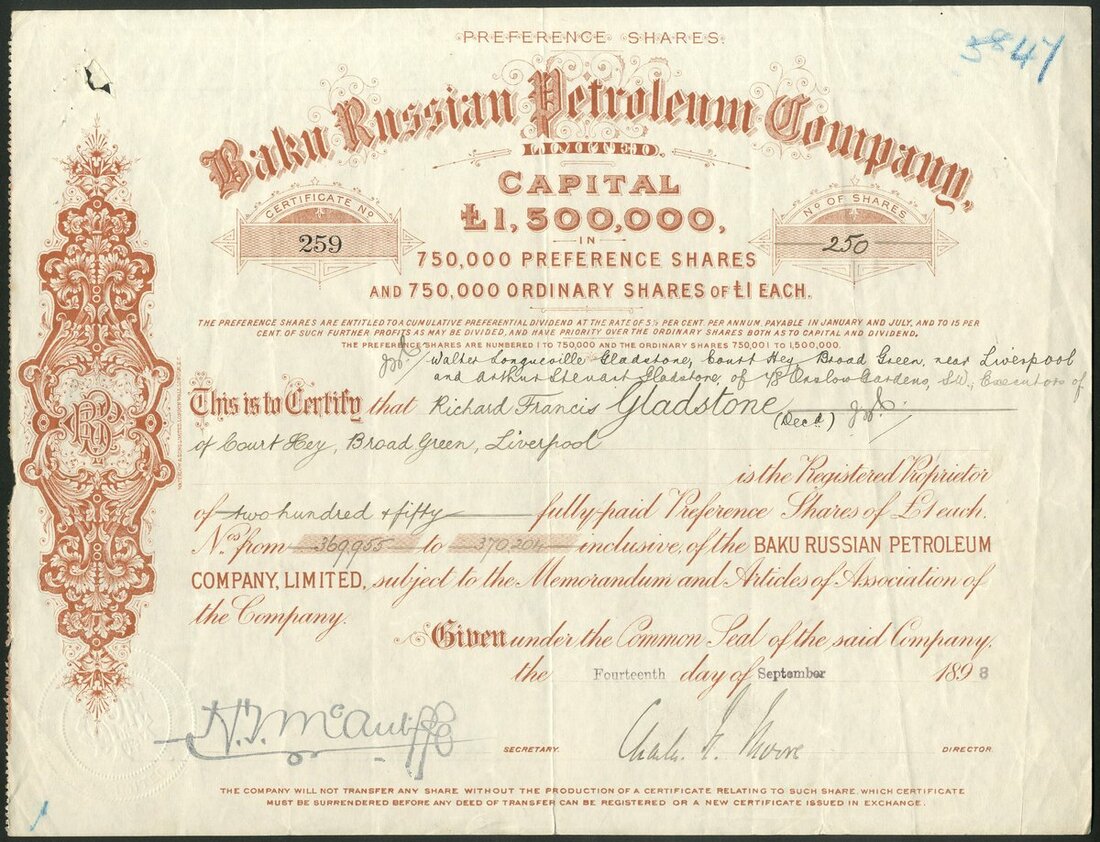 PREFERENCE SHARES.
5847
Baku Russian Petroleum Company,
LIMITED.
CAPITAL
£1,500,000,
CERTIFICATE No
259
No OF SHARES
250
IN
750,000 PREFERENCE SHARES
AND 750,000 ORDINARY SHARES OF £1 EACH.
THE PREFERENCE SHARES ARE ENTITLED TO A CUMULATIVE PREFERENTIAL DIVIDEND AT THE RATE OF 5½ PER CENT. PER ANNUM, PAYABLE IN JANUARY AND JULY, AND TO 15 PER
CENT. OF SUCH FURTHER PROFITS AS MAY BE DIVIDED, AND HAVE PRIORITY OVER THE ORDINARY SHARES BOTH AS TO CAPITAL AND DIVIDEND.
THE PREFERENCE SHARES ARE NUMBERED 1 TO 750,000 AND THE ORDINARY SHARES 750,001 TO 1,500,000.
Walter Longueville Gladstone, Court Hey, Broad Green, near Liverpool
and Arthur Steuart Gladstone, of 48 Onslow Gardens, S.W., Executors of
This is to Certify that Richard Francis Gladstone (Decd)
of Court Hey, Broad Green, Liverpool
is the Registered Proprietor
of two hundred & fifty fully-paid Preference Shares of £1 each.
Nos from 369,955 to 370,204 inclusive, of the BAKU RUSSIAN PETROLEUM
COMPANY, LIMITED, subject to the Memorandum and Articles of Association of
the Company.
Given under the Common Seal of the said Company,
the Fourteenth day of September 1898
H.T. McAuliffe
SECRETARY.
Charles F. Moore
DIRECTOR.
THE COMPANY WILL NOT TRANSFER ANY SHARE WITHOUT THE PRODUCTION OF A CERTIFICATE RELATING TO SUCH SHARE, WHICH CERTIFICATE
MUST BE SURRENDERED BEFORE ANY DEED OF TRANSFER CAN BE REGISTERED OR A NEW CERTIFICATE ISSUED IN EXCHANGE.